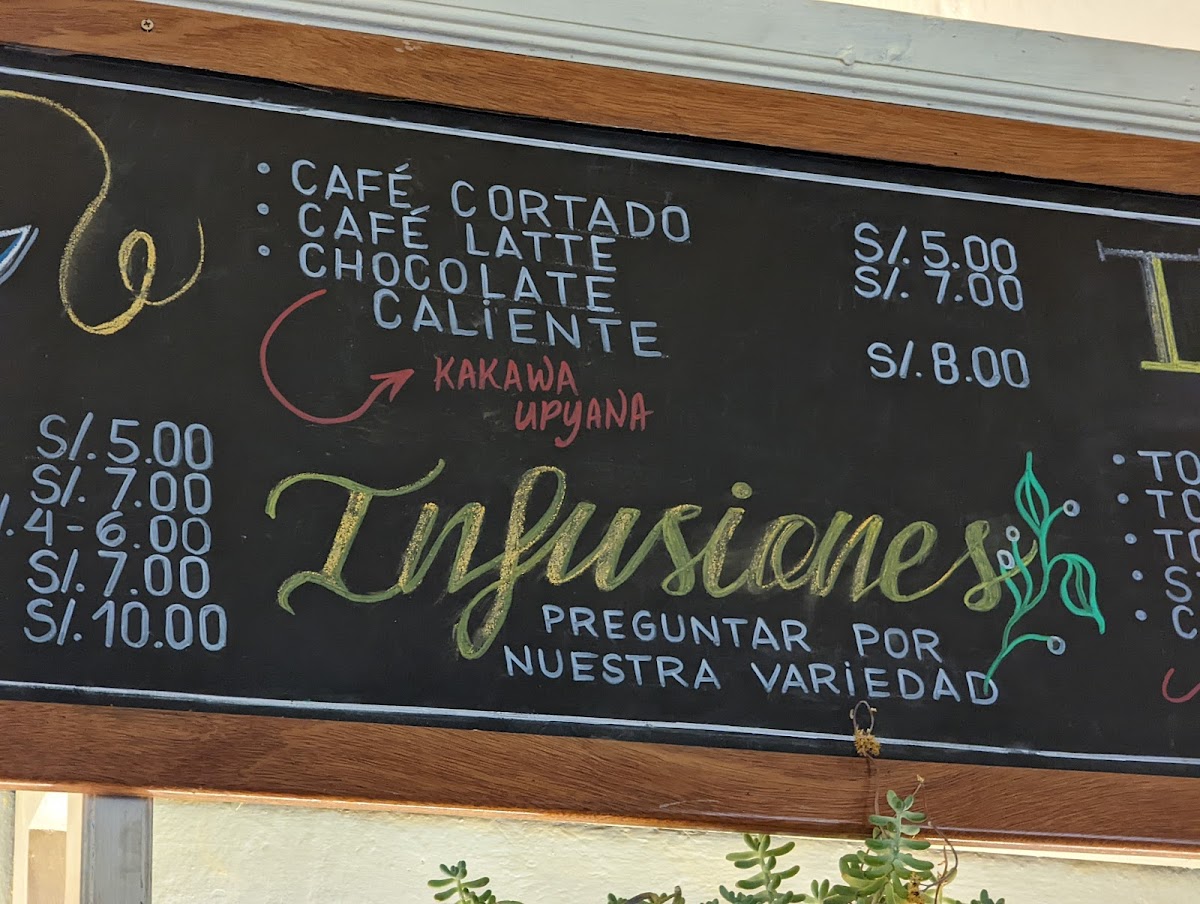 • CAFÉ CORTADO S/. 5.00
• CAFÉ LATTE S/. 7.00
• CHOCOLATE
CALiENTE S/. 8.00
KAKAWA
UPYANA
S/. 5.00
S/. 7.00
4-6.00
S/. 7.00
S/. 10.00
Infusiones
PREGUNTAR POR
NUESTRA VARiEDAD